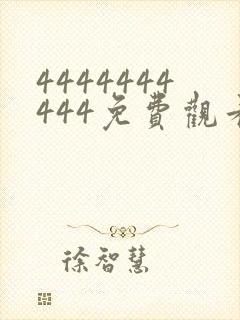 4444444
444免費觀
徐智慧